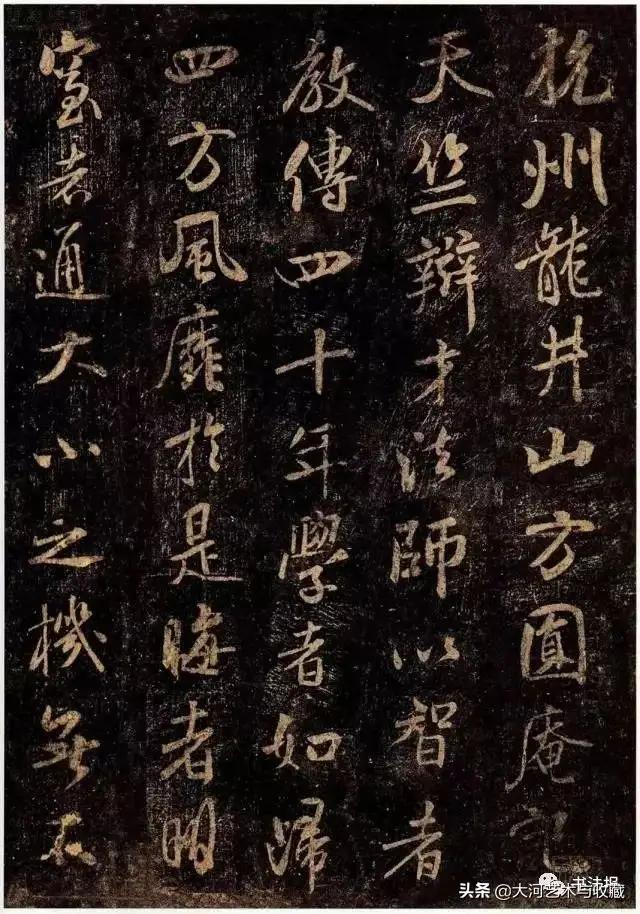 杭州龍井山方圓庵記
天竺辯才法師以智者
教傳四十年學者如歸
四方風靡於是晦者明
窒者通大小之機無不
书法报
头条 @大河艺术与收藏